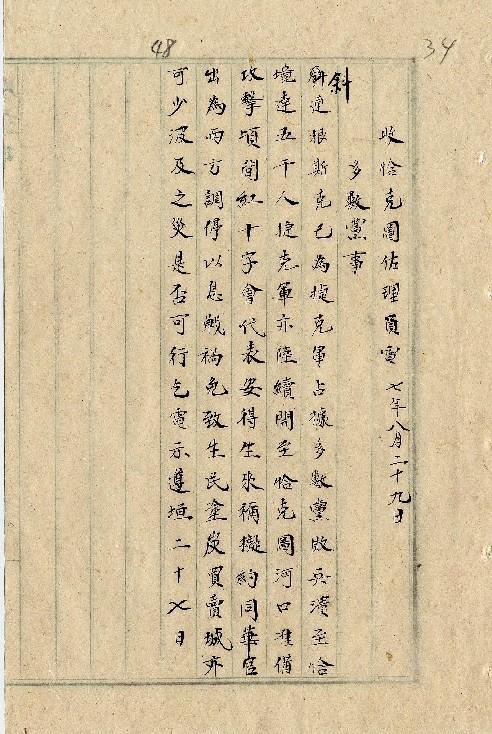 48
34
收恰克圖佐理員電 七年八月二十九日
多數黨事
斜
斯克已為捷克軍占據多數黨敗兵潰至恰
境達五千人捷克軍亦陸續開至恰克圖河口準備
攻擊頃聞紅十字會代表安得生來稱擬約同華官
出為兩方調停以息戰禍免致生民塗炭買賣城亦
可少波及之災是否可行乞電示遵垣二十七日